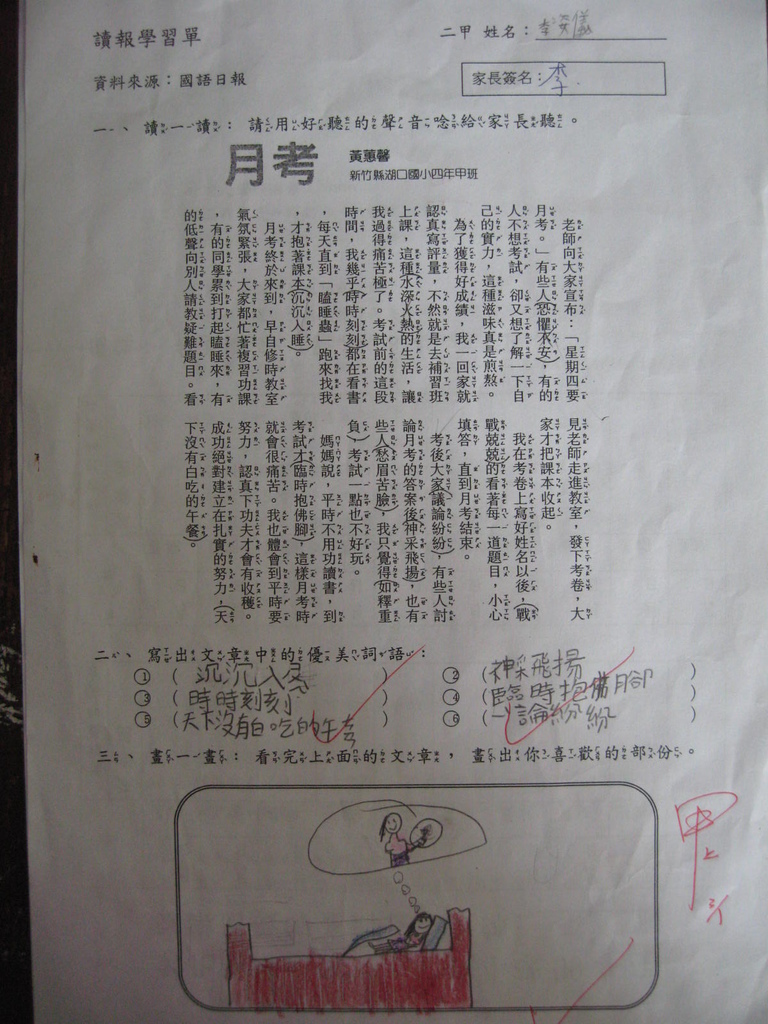 讀報學習單
二甲 姓名：李
資料來源：國語日報
家長簽名：李
一、讀一讀：請用好聽的聲音唸給家長聽。
月考
黃蕙馨
新竹縣湖口國小四年甲班
老師向大家宣布：「星期四要
月考。」有些人恐懼不安，有的
人不想考試，卻又想了解一下自
己的實力，這種滋味真是煎熬。
為了獲得好成績，我一回家就
認真寫評量，不然就是去補習班
上課，這種水深火熱的生活，讓
我過得痛苦極了。考試前的這段
時間，我幾乎時時刻刻都在看書
，每天直到「瞌睡蟲」跑來找我
，才抱著課本沉沉入睡。
月考終於來到，早自修時教室
氣氛緊張，大家都忙著複習功課
，有的同學累到打起瞌睡來，有
的低聲向別人請教疑難題目。看
見老師走進教室，發下考卷，大
家才把課本收起。
我在考卷上寫好姓名以後，戰
戰兢兢的看著每一道題目，小心
填答，直到月考結束。
考後大家議論紛紛，有些人討
論月考的答案後神采飛揚，也有
些人愁眉苦臉，我只覺得如釋重
負，考試一點也不好玩。
媽媽說，平時不用功讀書，到
考試才臨時抱佛腳，這樣月考時
就會很痛苦。我也體會到平時要
努力，認真下功夫才會有收穫。
成功絕對建立在扎實的努力，天
下沒有白吃的午餐。
二、寫出文章中的優美詞語：
①（沉沉入 ）
②（神采飛揚）
③（時時刻刻）
④（臨時抱 腳）
⑤（天下沒有白吃的午 ）
⑥（ 論紛紛）
三、畫一畫：看完上面的文章，畫出你喜歡的部份。
甲上